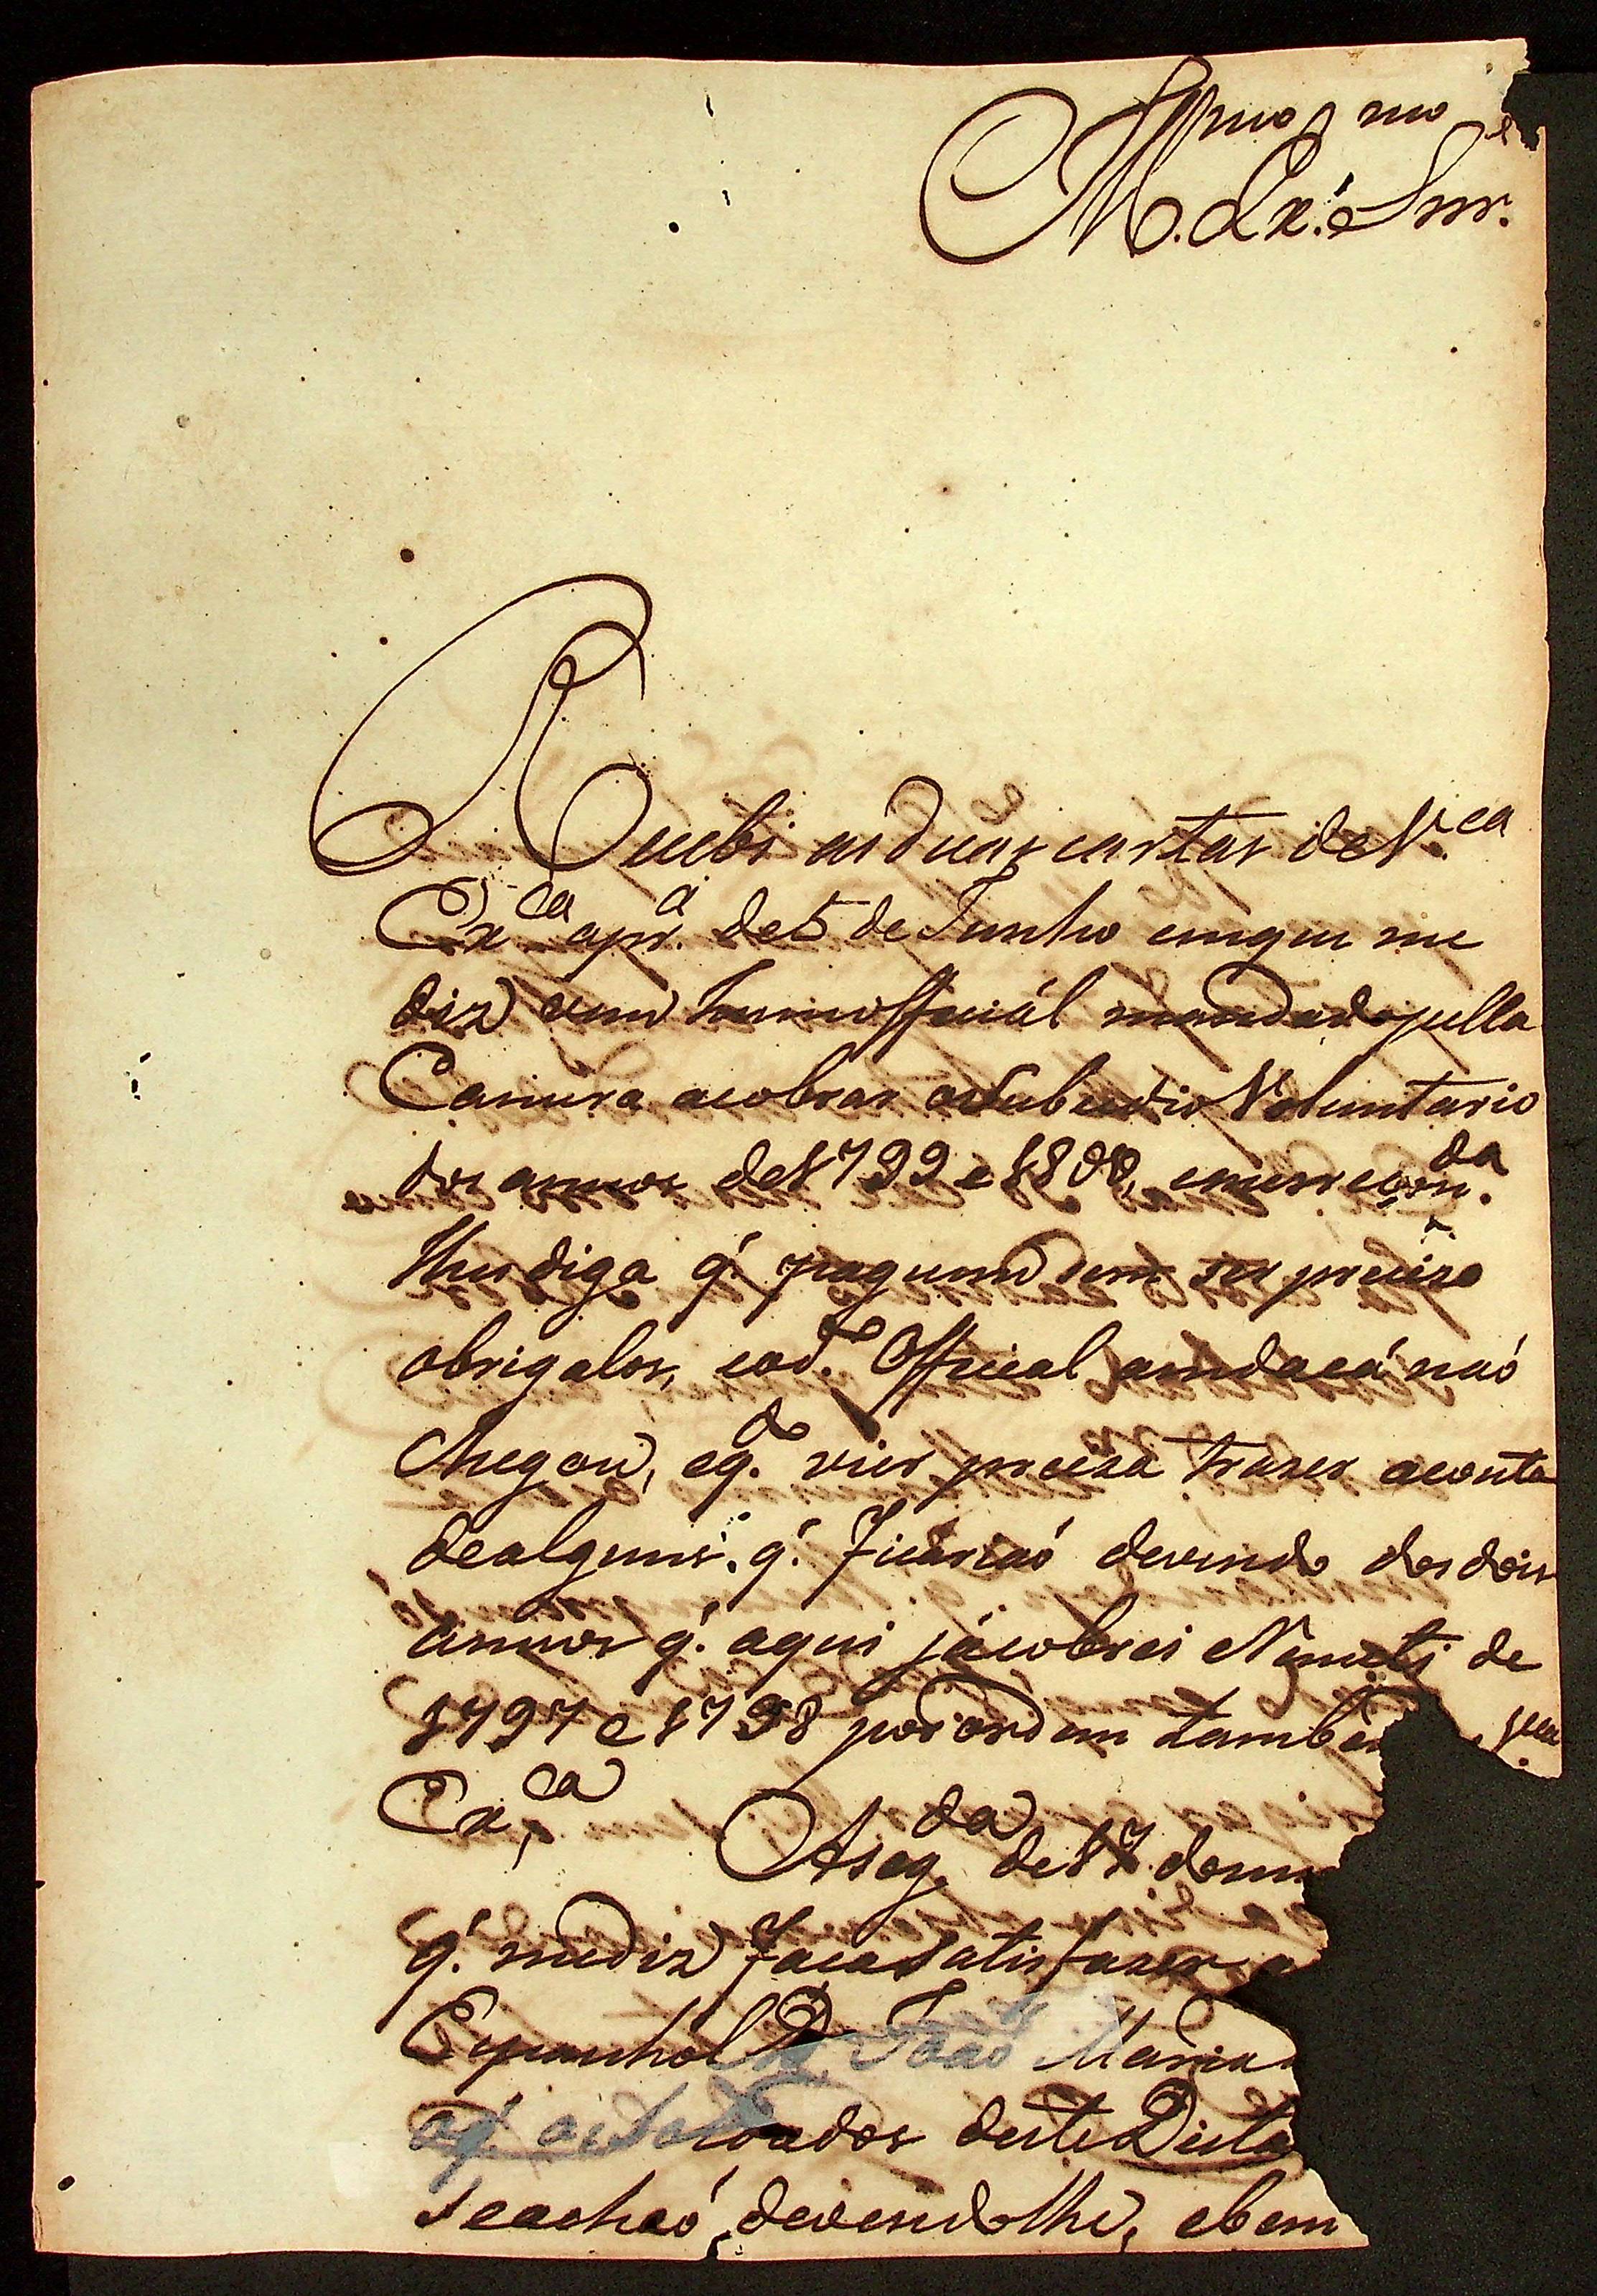 Illmo e Exmo Snr.
Recebi as duas cartas de V.ca
Ex.ca a pr.a de 5 de Junho emque me
diz vem hum official mandado pella
Camera acobrar oSubcidio Voluntario
dos annos de 1799 e 1800, emerecom.da
lhes diga q' paguem sem ser precizo
obrigalos, eod.o Official aindacá naó
chegou, eq.do vier preciza trazer aconta
dealguns. q' ficaraó devendo dos dois
annos q' aqui jácobrei de
1797 e 1798 por ordem també V.ca
Ex.ca
Aseg.da de 17 domm
q' mediz faca Satisfazer a
Espanhol D. Joaó Maria
aq' os dos deste Dist
Seachaó devendolhe, ebem